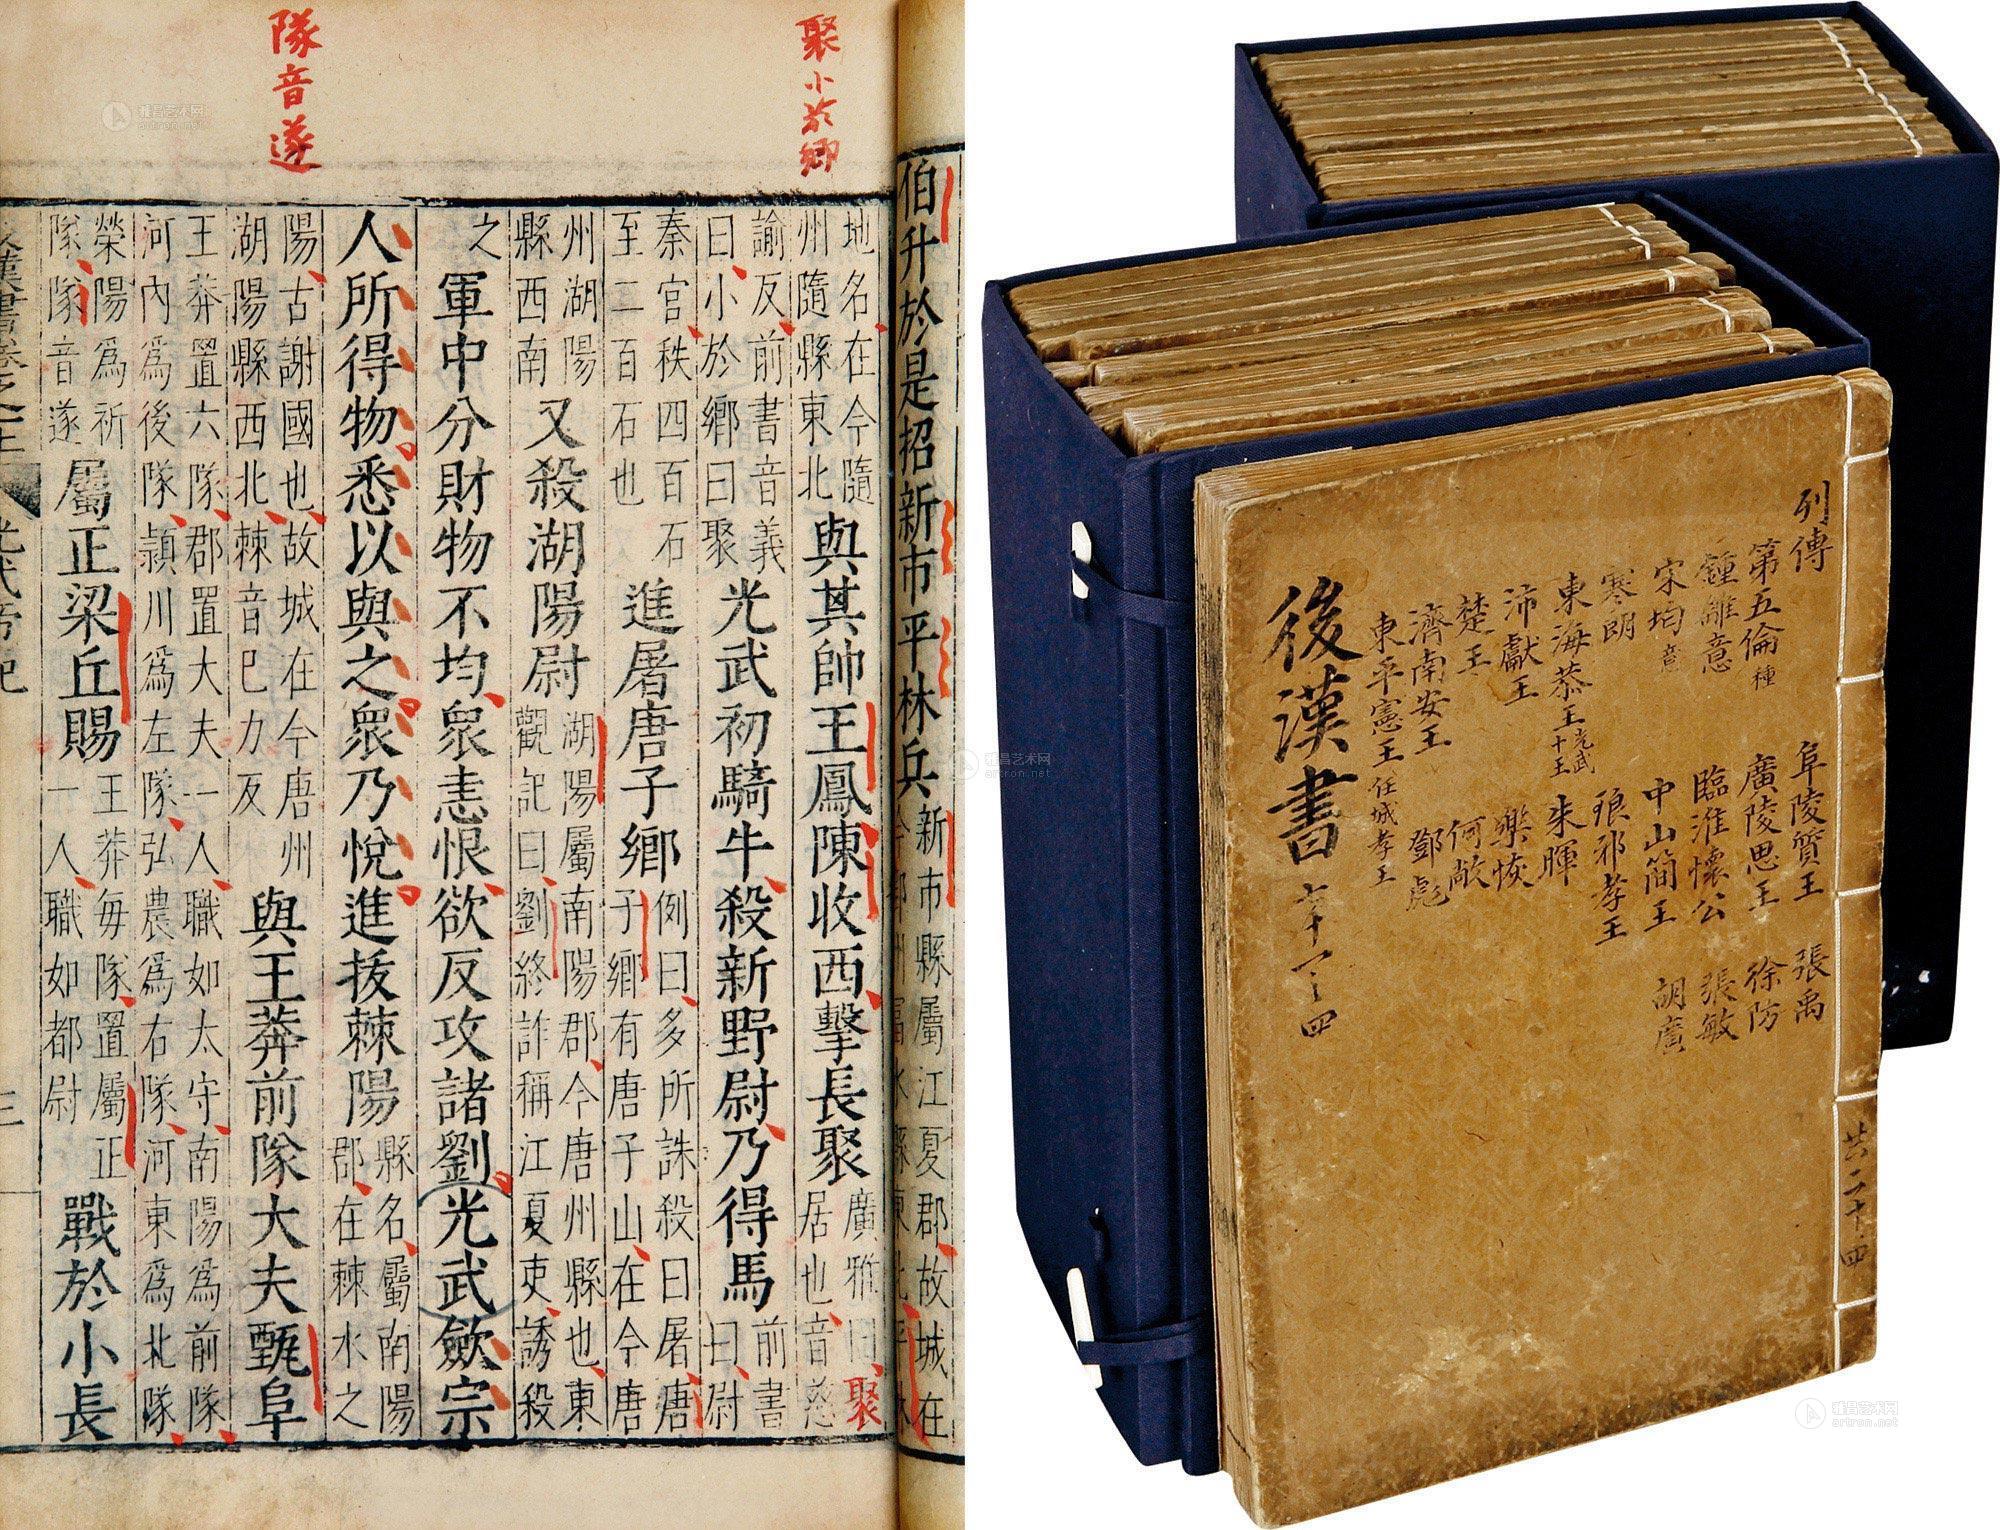 聚小於鄉
隊音遂
伯升於是招新市平林兵
新市縣屬江夏郡故城在
地名在今隨
州隨縣東北
與其帥王鳳陳收西擊長聚
廣雅曰聚
居也音慈
諭反前書音義
曰小於鄉曰聚
光武初騎牛殺新野尉乃得馬
前書
曰尉
秦官秩四百石
至二百石也
進屠唐子鄉
例曰多所誅殺曰屠唐
子鄉有唐子山在今唐
州湖陽
縣西南
又殺湖陽尉
湖陽屬南陽郡今唐州縣也東
觀記曰劉終詐稱江夏吏誘殺
之
軍中分財物不均衆恚恨欲反攻諸劉光武歛宗
人所得物悉以與之衆乃悅進拔棘陽
縣名屬南陽
郡在棘水之
陽古謝國也故城在今唐州
湖陽縣西北棘音巳力反
與王莽前隊大夫甄阜
王莽置六隊郡置大夫一人職如太守南陽為前隊
河內為後隊潁川為左隊弘農為右隊河東為北隊
榮陽為祈
隊隊音遂
屬正梁丘賜
王莽每隊置屬正
一人職如都尉
戰於小長
列傳
第五倫 種
鍾離意
宋均 意
寒朗
東海恭王 光武十王
沛獻王
楚王
濟南安王
東平憲王 任城孝王
阜陵質王
廣陵思王
臨淮懷公
中山簡王
琅邪孝王
朱暉
樂恢
何敞
鄧彪
張禹
徐防
張敏
胡廣
後漢書
共二十四
雅昌艺术网
artron.net